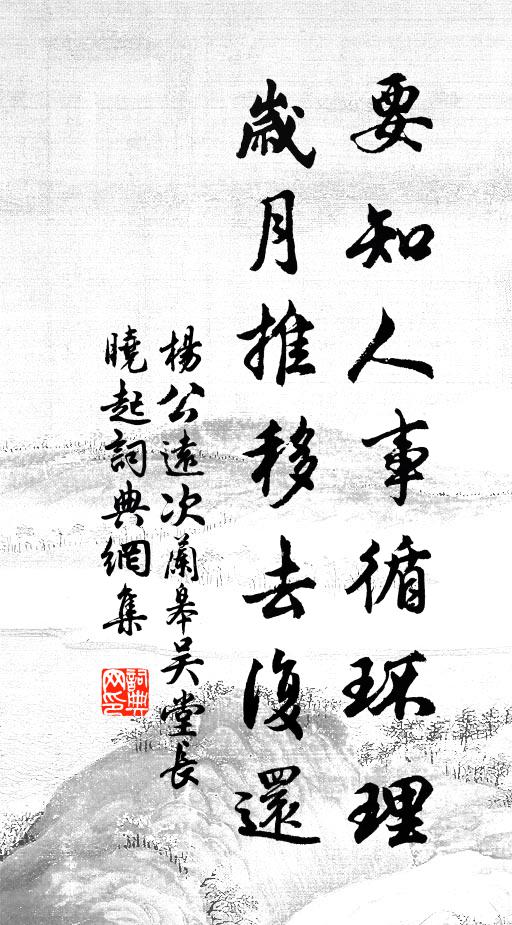 要知人事循环理
歲月推移去復還
楊公遠次蘭皋吴堂長
曉起詞典網集
詞典
网印